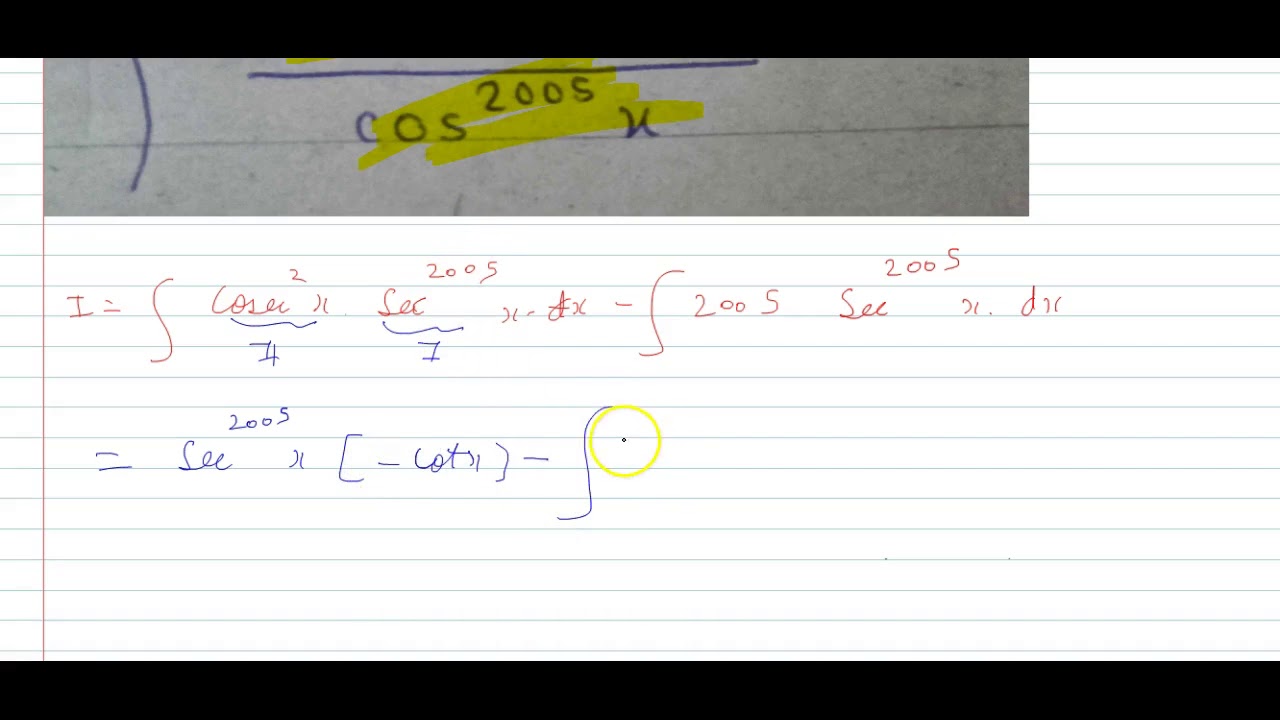 cos^2005 x
I = ∫ Cosec^2 x. Sec^2005 x. dx - ∫ 2005 Sec^2005 x. dx
II I
= Sec^2005 x [-Cotx] - ∫